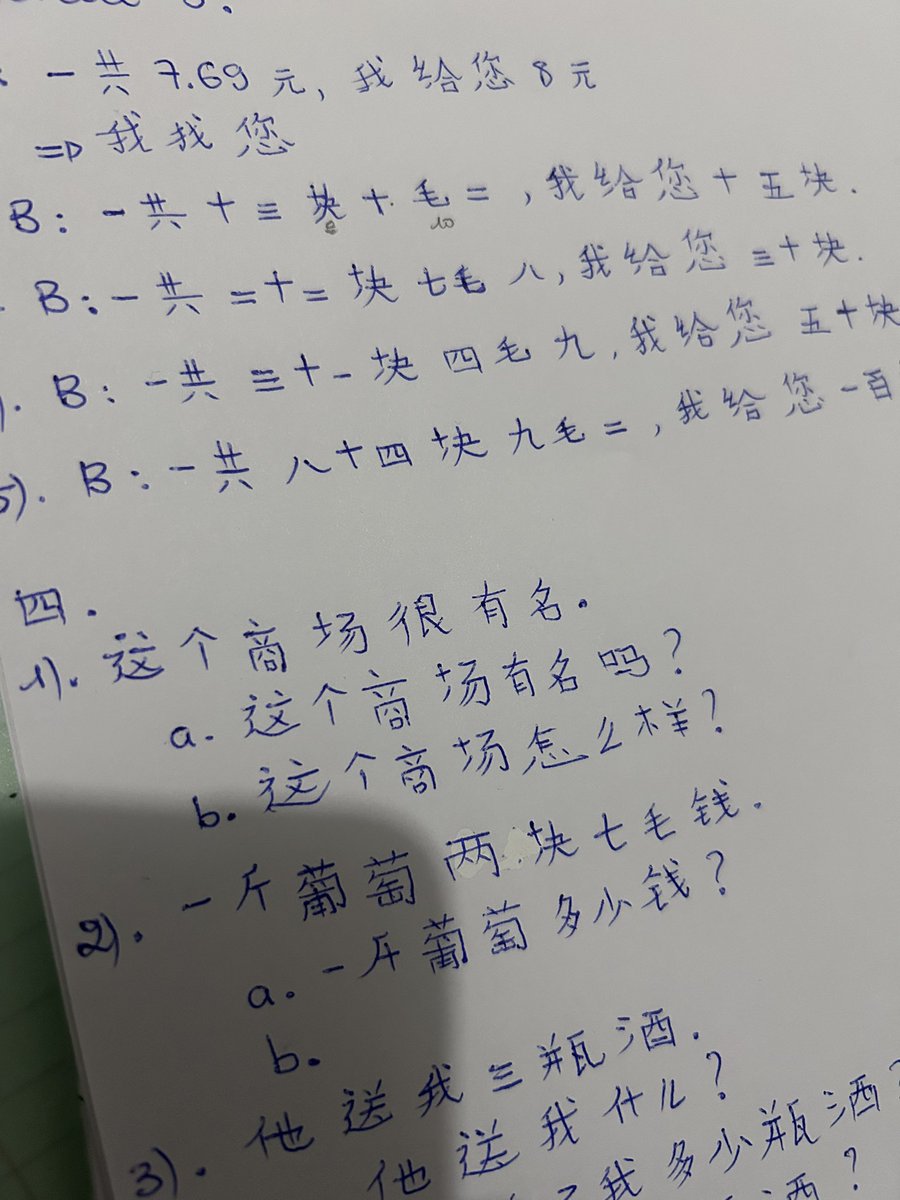 : 一共 7.69 元, 我给您 8 元
⇒ 我找您
B: 一共十三块十毛二, 我给您十五块.
B: 一共二十二块七毛八, 我给您三十块.
). B: 一共三十一块四毛九, 我给您五十块
5). B: 一共八十四块九毛二, 我给您一百
四.
1). 这个商场很有名.
a. 这个商场有名吗?
b. 这个商场怎么样?
2). 一斤葡萄两块七毛钱.
a. 一斤葡萄多少钱?
b.
3). 他送我三瓶酒.
他送我什儿?
我多少瓶酒?
酒?